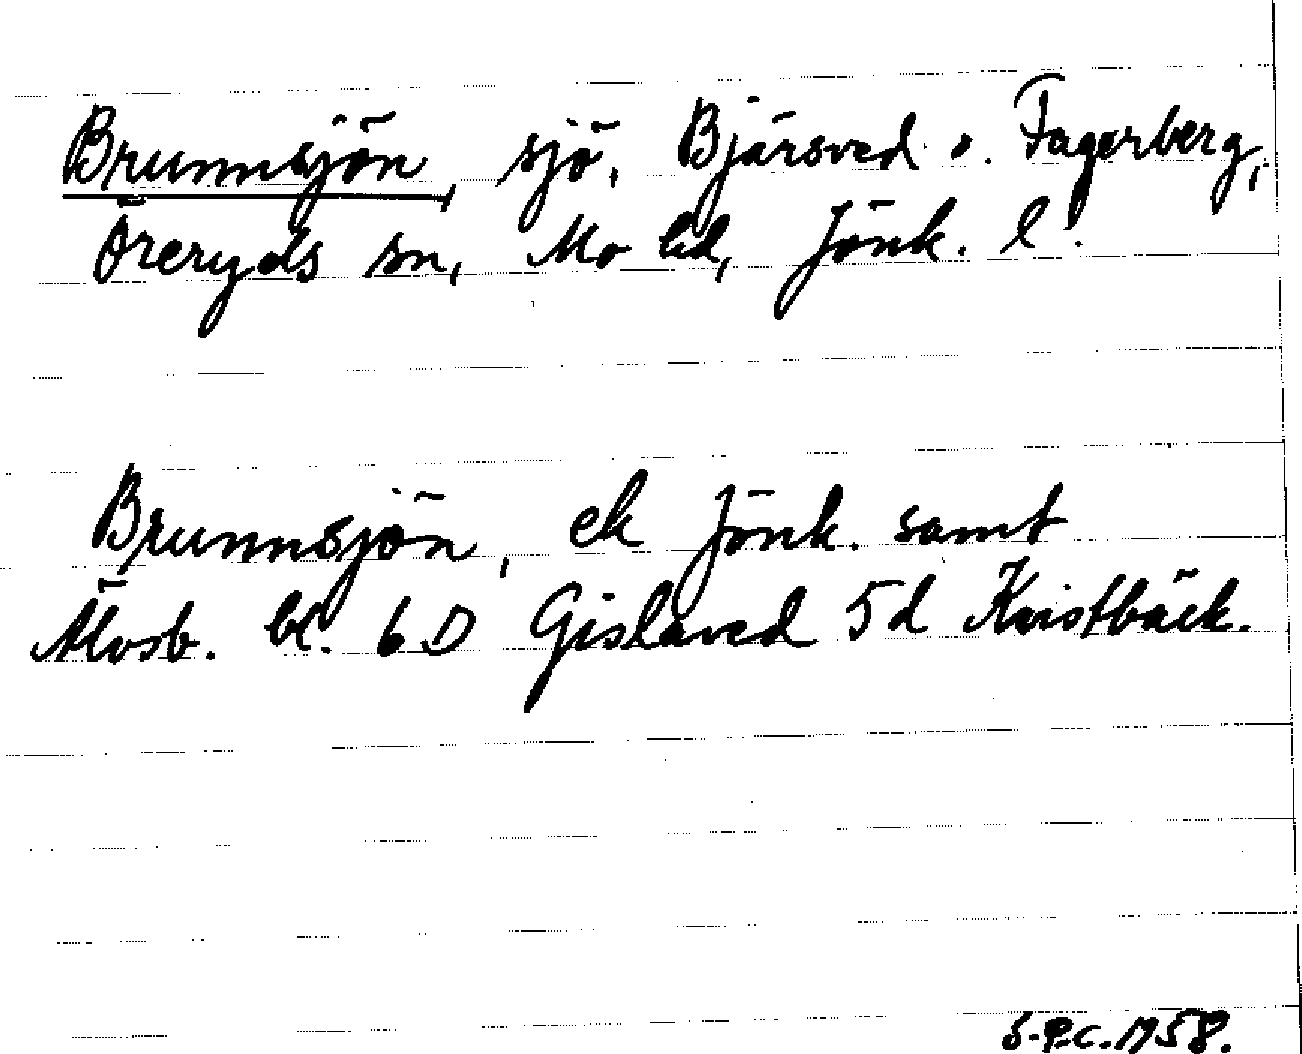 Brunnsjön, sjö, Bjärsved o. Fagerberg,
Öreryds sn, Mo hd, Jönk. l.
Brunnsjön, ek Jönk. samt
Älvsb. bl. 6D Gislaved 5d Kvistbäck.
S.P.C. 1958.